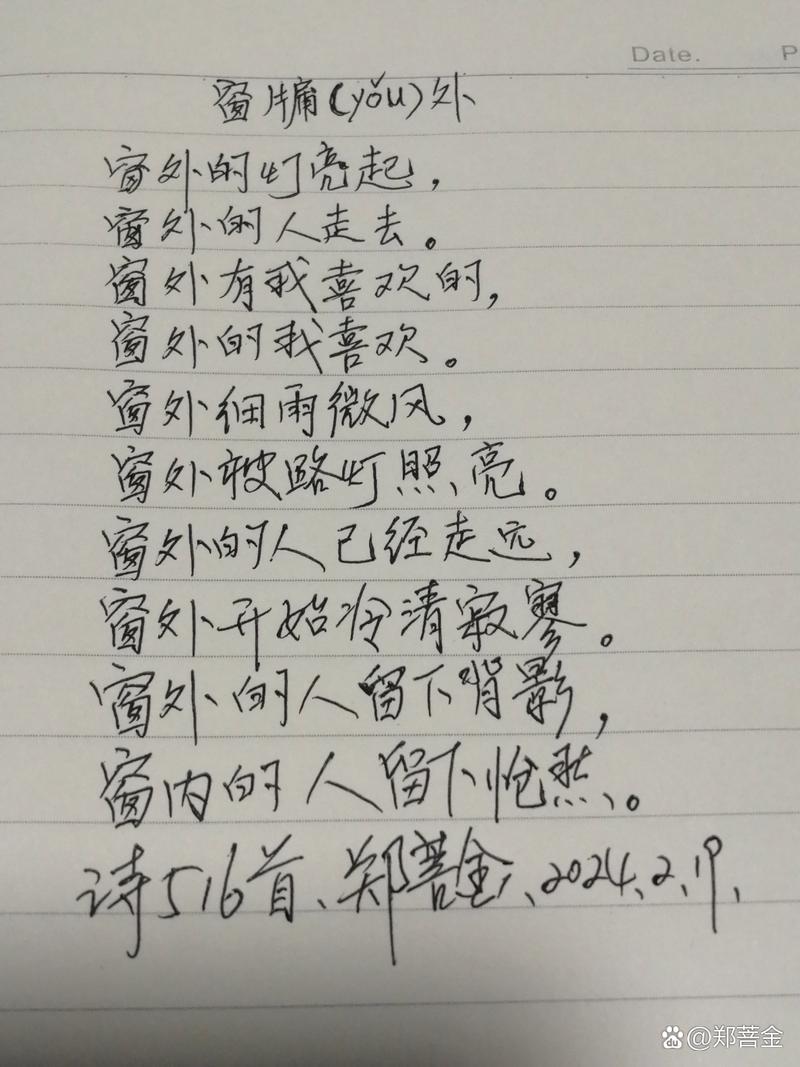 Date.
P
窗牖(yǒu)外
窗外的灯亮起，
窗外的人走去。
窗外有我喜欢的，
窗外的我喜欢。
窗外细雨微风，
窗外被路灯照亮。
窗外的人已经走远，
窗外开始冷清寂寥。
窗外的人留下背影，
窗内的人留下怆然。
诗516首、郑菩金、2024.2.19.
@郑菩金